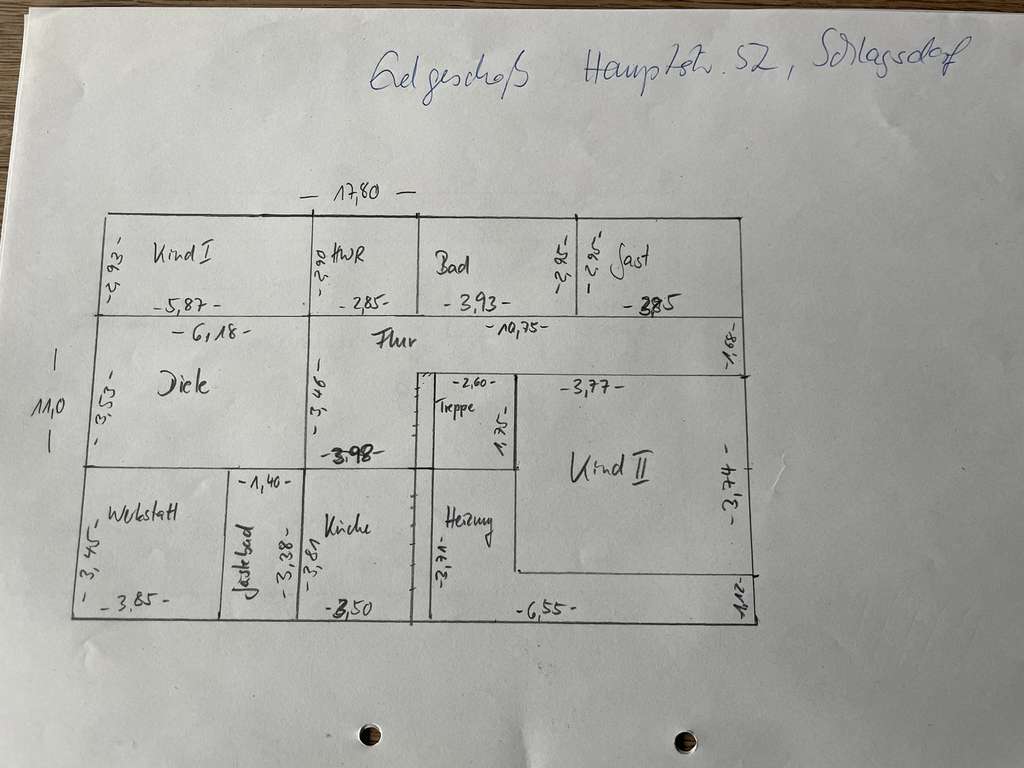 Erdgeschoß Hauptstr. 52, Schlagsdorf
- 17,80 -
Kind I
-2,93-
-5,87-
HWR
-2,90-
-2,85-
Bad
-2,95-
-3,93-
Gast
-2,95-
-6,18-
Flur
-10,75-
-1,68-
- 11,0 -
Diele
-3,53-
-3,46-
-3,98-
-2,60-
Treppe
1,75-
-3,77-
Kind II
-3,74-
Werkstatt
-3,45-
-3,85-
-1,40-
Gästebad
-3,38-
Küche
-3,81
-3,50
Heizung
-3,71-
-6,55-
-1,12-